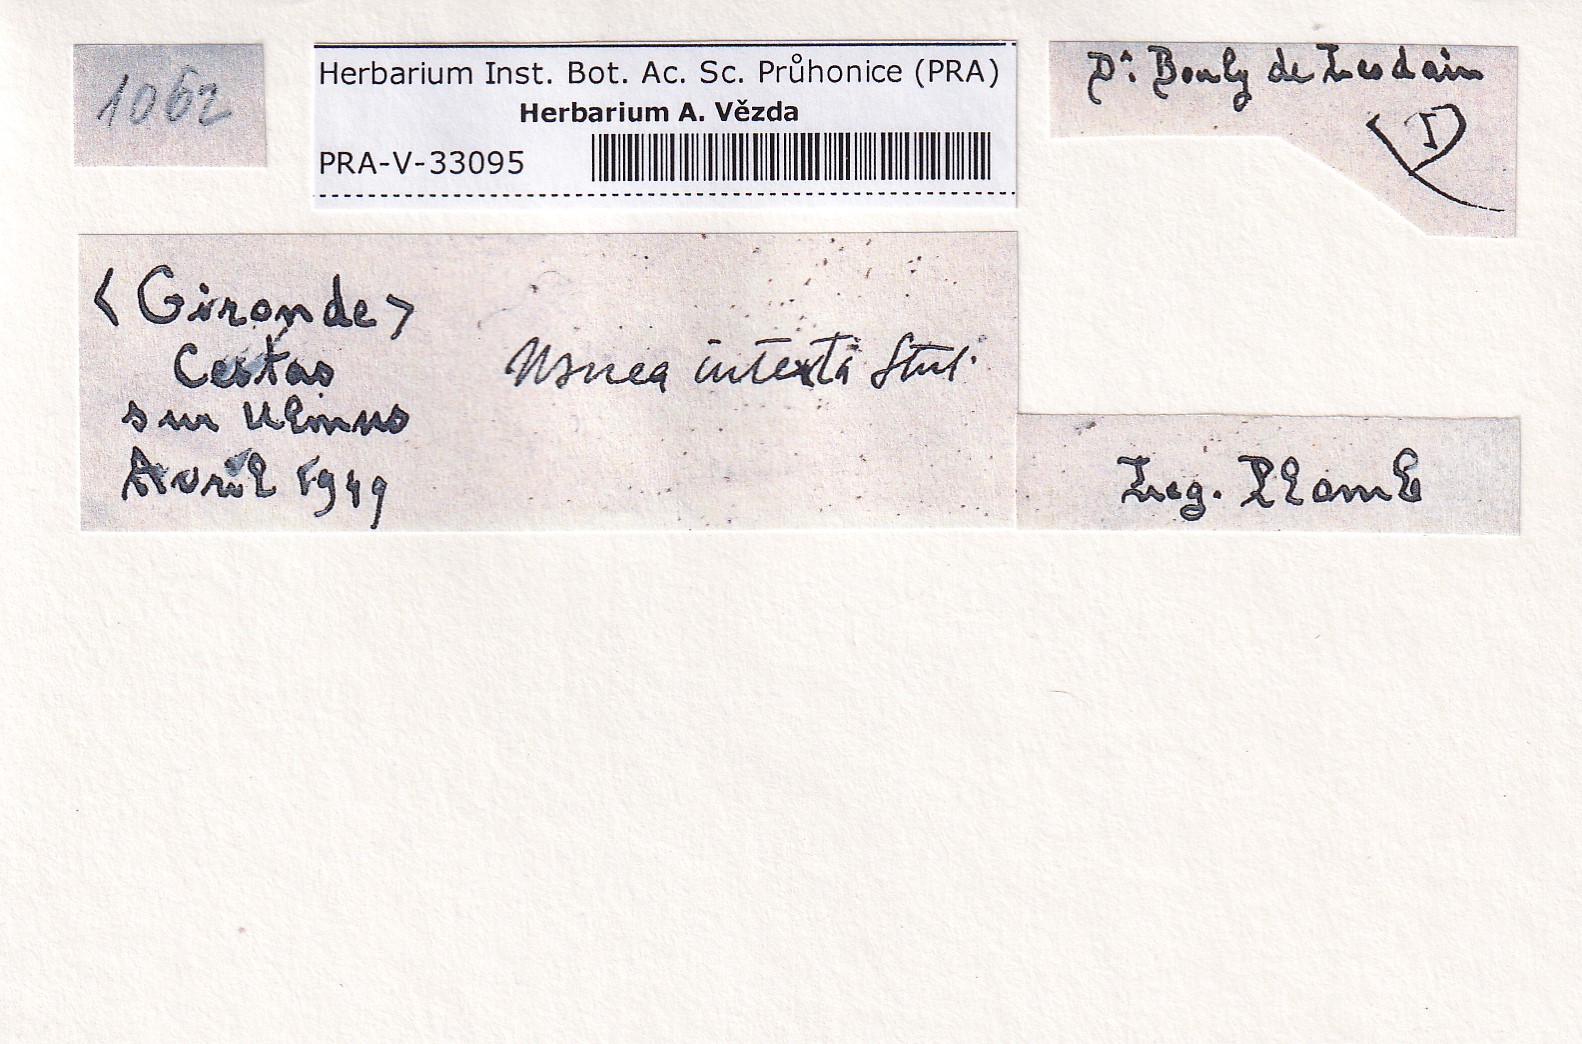 1062
Herbarium Inst. Bot. Ac. Sc. Průhonice (PRA)
Herbarium A. Vězda
PRA-V-33095
Dr Bouly de Lesdain
(Gironde)
Cestas
sur Ulmus
Avril 1949
Usnea intexta Stirt.
Leg. Plomb